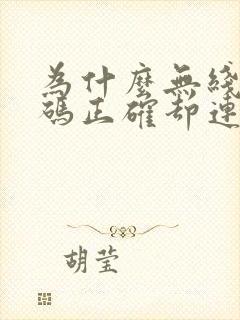 為什麼無綫
碼正確却連
胡莹